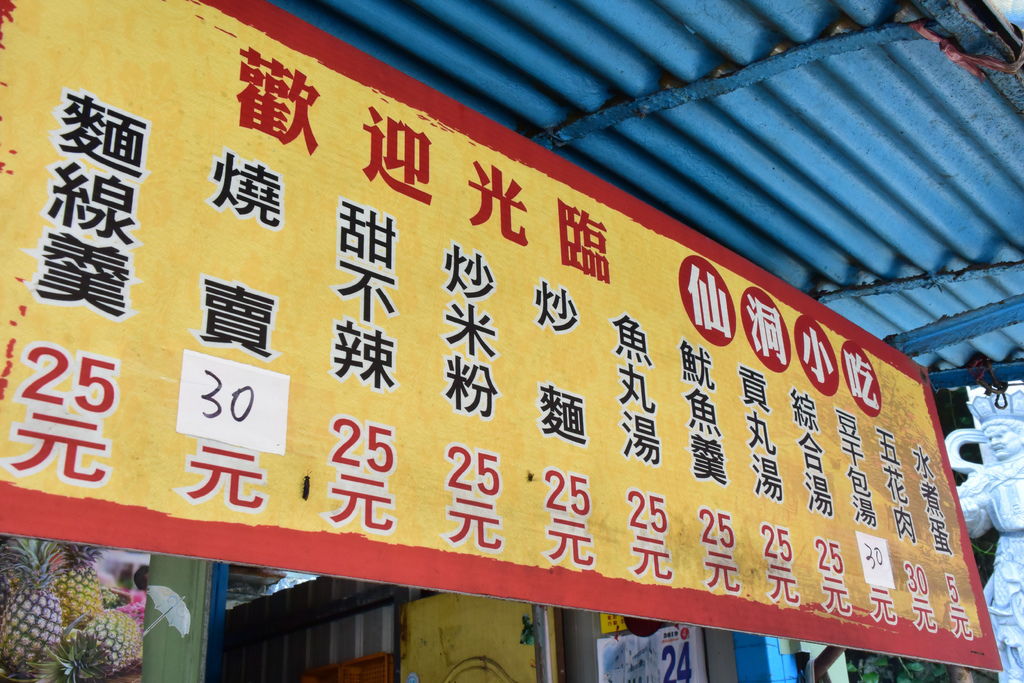 歡迎光臨
仙洞小吃
麵線羹
25元
燒賣
30元
甜不辣
25元
炒米粉
25元
炒麵
25元
魚丸湯
25元
魷魚羹
25元
貢丸湯
25元
綜合湯
25元
豆干包湯
30元
五花肉
30元
水煮蛋
5元
24